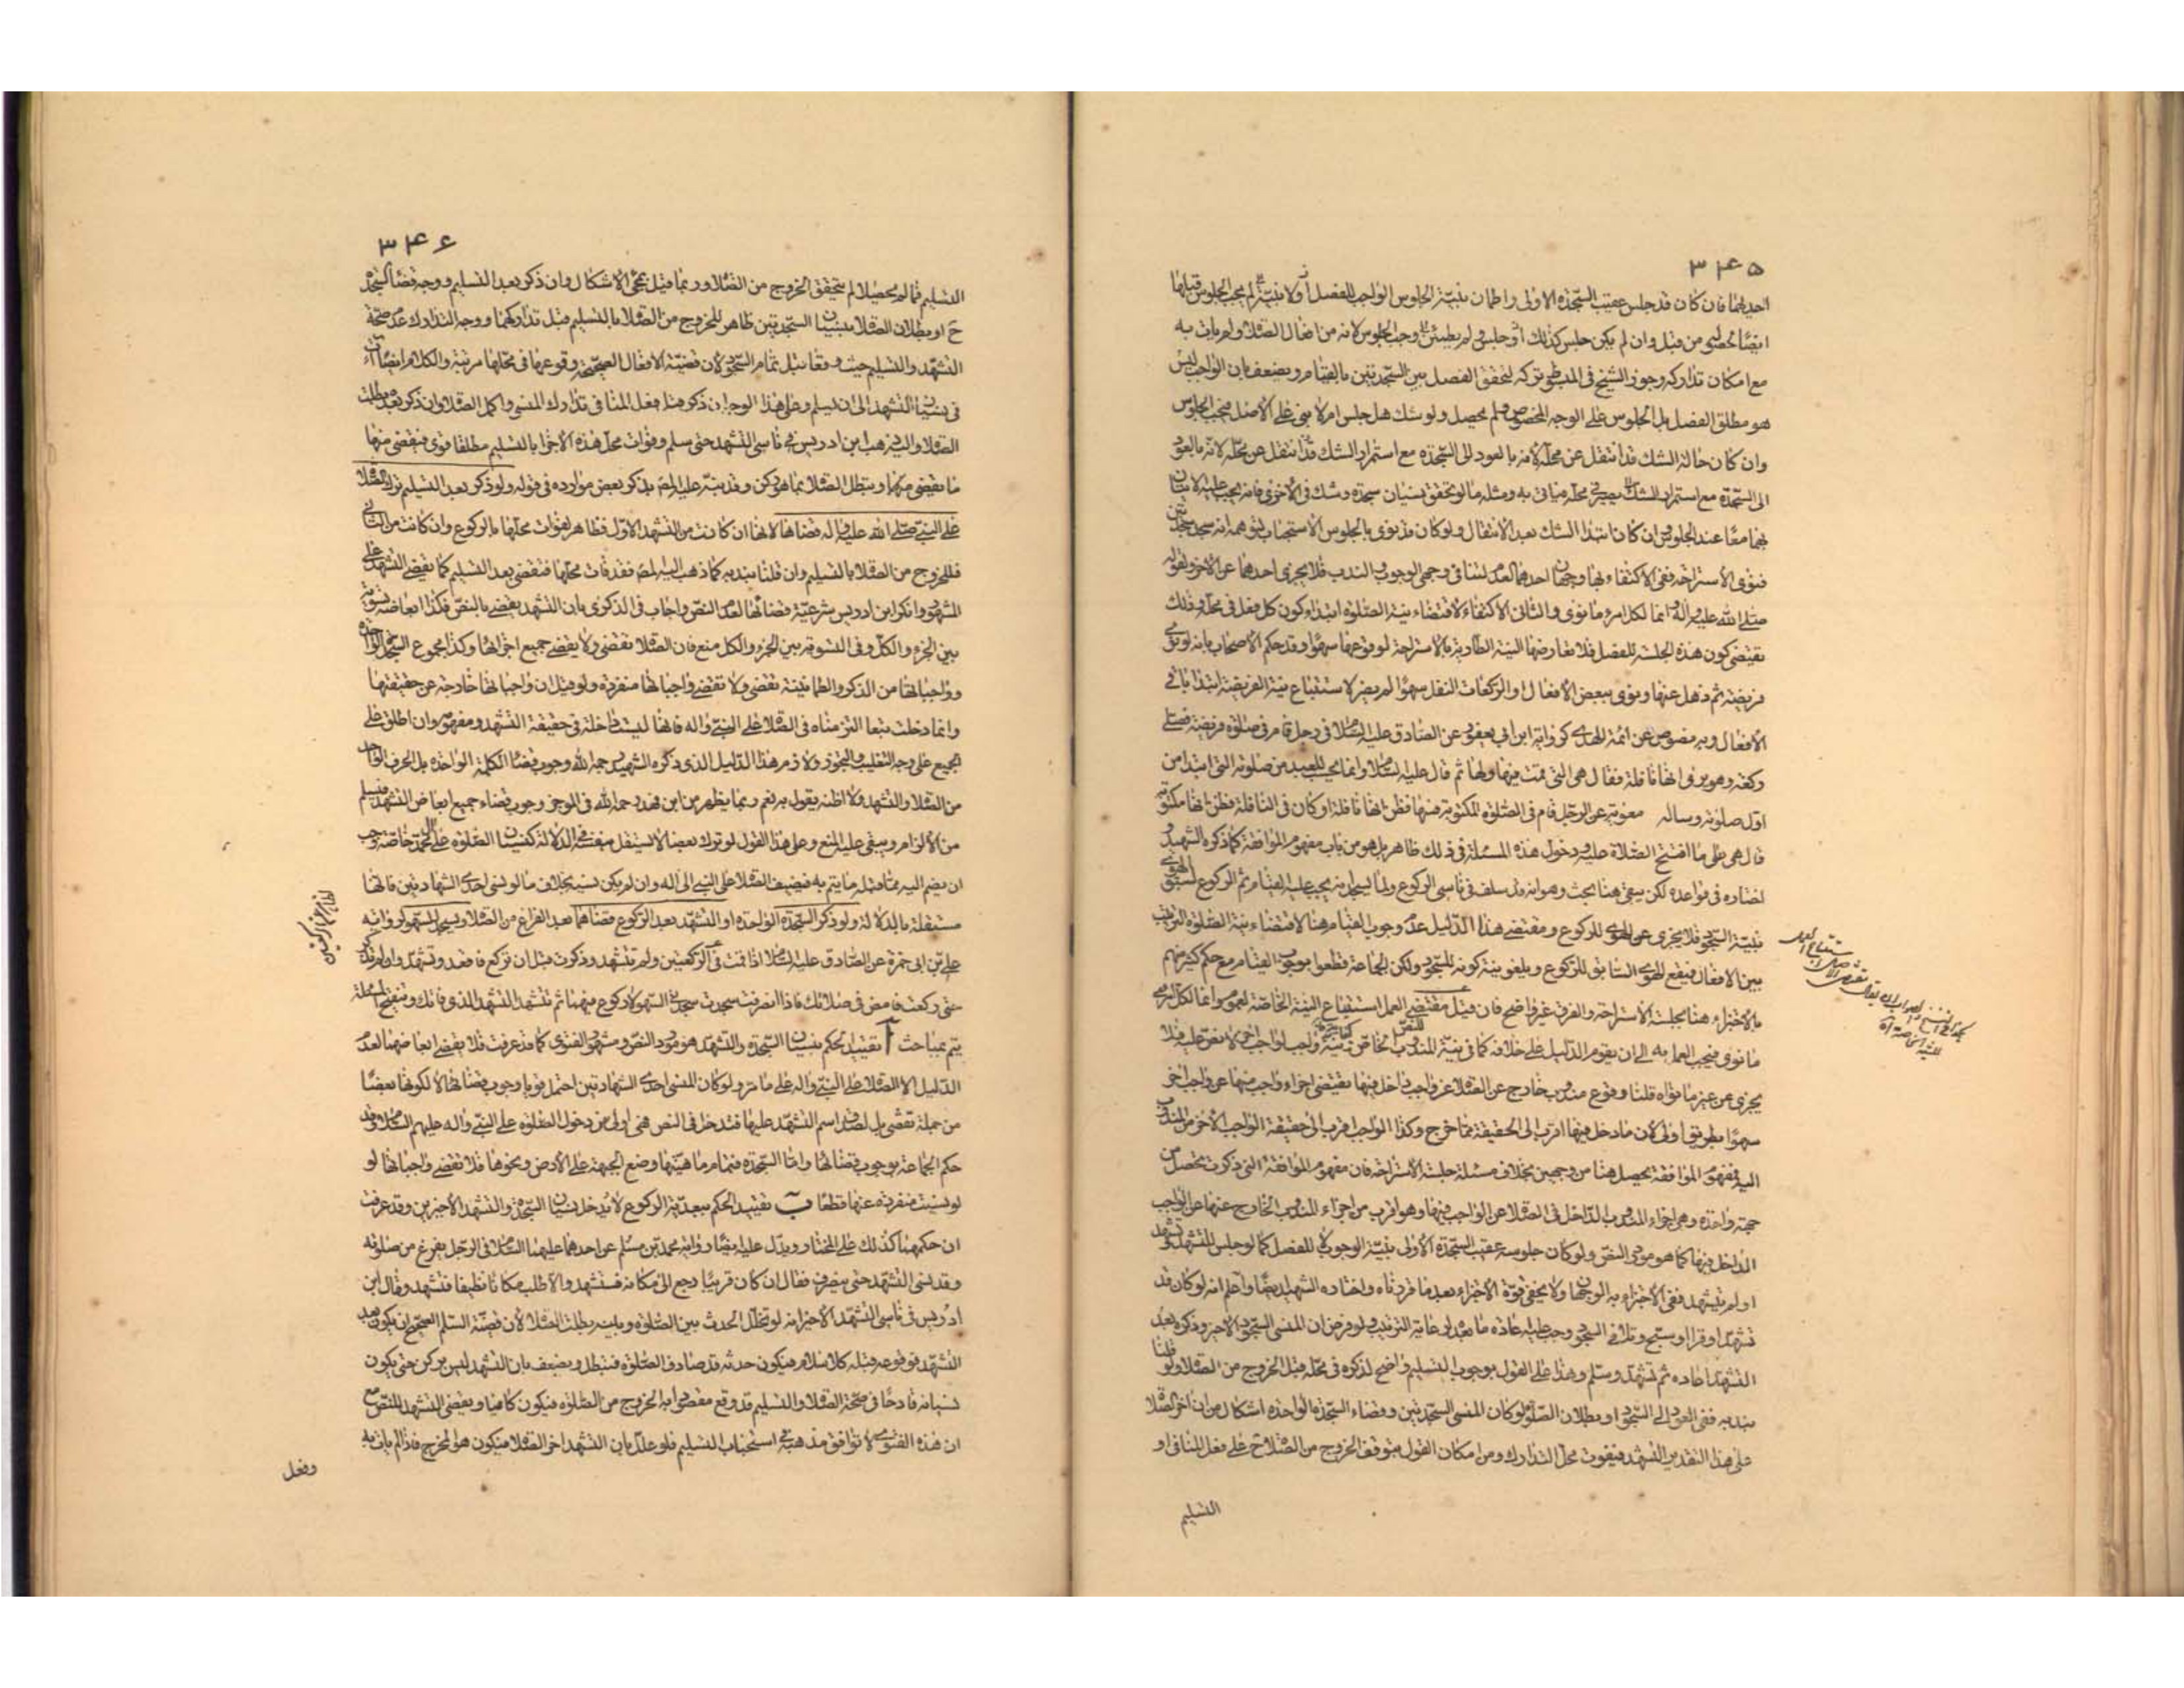 ٣٤٥
احديهما فان كان قد جلس عقيب السّجدة الاولى واطمان بنيّة الجلوس الواجب للفصل أو لا بنيّة لم يجب الجلوس قبلها
ايضًا لحصوله من قبل وان لم يكن جلس كذلك أو جلس ولم يطمئن وجب الجلوس لانه من افعال الصّلاة ولم يات به
مع امكان تداركه وجوز الشيخ في المبسوط تركه لتحقق الفصل بين السّجدتين بالقيام ويضعف بان الواجب ليس
هو مطلق الفصل بل الجلوس على الوجه المخصوص ولم يحصل ولو شك هل جلس ام لا بنى على الاصل فيجب الجلوس
وان كان حالة الشك قد انتقل عن محله لانه بالعود الى السّجدة مع استمرار الشك قد انتقل عن محله لانه بالعود
الى السّجدة مع استمرار الشك يصير في محله فياتى به ومثله ما لو تحقق نسيان سجدة وشك في الاخرى فانه يجب عليه الاتيان
بهما معًا عند الجلوس وان كان ابتداء الشك بعد الانتقال ولو كان قد نوى بالجلوس الاستحباب لتوهمه انه سجد سجدتين
فنوى الاستراحة ففى الاكتفاء بها وجهان احدهما العدم لتنافى وجهى الوجوب والندب فلا يجزى احدهما عن الاخر ولقوله
صلى الله عليه وآله انما لكل امرء ما نوى والثانى الاكتفاء لاقتضاء نية الصلوة ابتداء كون كل فعل في محله وذلك
يقتضى كون هذه الجلسة للفصل فلا تعارضها النية الطارية بالاستراحة لوقوعها سهوًا وقد حكم الاصحاب بانه لو نوى
فريضة ثم ذهل عنها ونوى ببعض الافعال او الركعات النفل سهوًا لم يضر لاستتباع نية الفريضة ابتداء باقى
الافعال وبه نصوص عن ائمة الهدى كرواية ابن ابى يعفور عن الصادق عليه السّلام في رجل قام في صلوة فريضة فصلى
ركعة وهو يرى انها نافلة فقال هى التى قمت فيها ولها ثم قال عليه السّلام وانما يحسب للعبد من صلوته التى ابتدا من
اول صلوته وساله معوية عن الرجل قام في الصلوة المكتوبة فسها فظن انها نافلة او كان في النافلة فظن انها مكتوبة
قال هى على ما افتتح الصّلاة عليه ودخول هذه المسئلة في ذلك ظاهر بل هو من باب مفهوم الموافقة كما ذكره الشهيد
اختاره في قواعده لكن يبقى هنا بحث وهو انه قد سلف في ناسى الركوع ولما يسجد انه يجب عليه القيام ثم الركوع لسبق الهوى
بنيّة السجود فلا يجزى عن الهوى للركوع ومقتضى هذا الدّليل عدم وجوب القيام هنا لاقتضاء نية الصلوة الترتيب
بين الافعال فيقع الهوى السّابق للركوع ويلغو نية كونه للسّجود ولكن الجماعة قطعوا بوجوب القيام مع حكم كثير منهم
بالاجزاء هنا بجلسة الاستراحة والفرق غير واضح فان قيل مقتضى العمل استتباع النية الخاصّة لعموم وانما لكل امرء
ما نوى فيجب العمل به الى ان يقوم الدّليل على خلافه كما في نيّة المندوب
يجزى عن غير ما نواه قلنا وقوع مندوب خارج عن الصّلاة عن واجب داخل فيها يقتضى اجزاء واجب منها عن واجب اخر
سهوًا بطريق اولى لان ما دخل فيها اقرب الى الحقيقة مما خرج وكذا الواجب اقرب الى حقيقة الواجب الاخر من المندوب
اليه فمفهوم الموافقة يحصل هنا من وجهين بخلاف مسئلة جلسة الاستراحة فان مفهوم الموافقة التى ذكرت يحصل من
جهة واحدة وهى اجزاء المندوب الداخل في الصّلاة عن الواجب فيها وهو اقرب من اجزاء المندوب الخارج عنها عن الواجب
الداخل فيها كما هو مورد النصّ ولو كان جلوسه عقيب السّجدة الاولى بنيّة الوجوب لا للفصل كما لو جلس للتشهّد وتشهّد
او لم يتشهد ففى الاجزاء به الوجهان ولا يخفى قوة الاجزاء بعد ما قررناه واختاره الشهيد ايضًا واعلم انه لو كان قد
تشهّد او قرا او سبّح وتلافى السجود وجب عليه اعادة ما بعده لرعاية الترتيب ولو فرض ان المنسى السّجود الاخير وذكره بعد
التشهّد اعاده ثم تشهّد وسلم وهذا على القول بوجوب التسليم واضح لذكره في محله قبل الخروج من الصّلاة ولو قلنا
بندبه ففى العود الى السّجود او بطلان الصّلاة لو كان المنسى السّجدتين وقضاء السّجدة الواحدة اشكال من ان اخر الصّلاة
على هذا التقدير التشهد فيفوت محلّ التدارك ومن امكان القول بتوقف الخروج من الصّلاة ح على فعل المنافى او
التسليم
٣٤٦
التسليم فما لم يحصلا لم يتحقق الخروج من الصّلاة وربما قيل بمجئ الاشكال وان ذكر بعد التسليم ووجه قضاء السّجدة
ح او بطلان الصّلاة بنسيان السّجدتين ظاهر للخروج من الصّلاة بالتسليم قبل تداركهما ووجه التدارك عدم صحة
التشهّد والتسليم حيث وقعا قبل تمام السّجود لان قضيّة الافعال الصّحيحة وقوعها في محلها مرتبة والكلام ايضًا آت
في نسيان التشهّد الى ان يسلم وعلى هذا الوجه ان ذكر هنا فعل المنافى تدارك المنسى واكمل الصّلاة وان ذكر بعده بطلت
الصّلاة واليه ذهب ابن ادريس في ناسى التشهد حتى سلم وفوات محل هذه الاجزاء بالتسليم مطلقا قوى فيقضى منها
ما يقضى منها ويبطل الصّلاة بما هو ركن وقد نبّه عليه المصّ بذكر بعض موارده في قوله ولو ذكر بعد التسليم ترك الصّلاة
على النبىّ صلى الله عليه وآله قضاها لانها ان كانت من التشهد الاول فظاهر لفوات محلها بالركوع وان كانت من الثانى
فللخروج من الصّلاة بالتسليم وان قلنا بندبه كما ذهب اليه المصّ فقد فات محلها فتقضى بعد التسليم كما يقضى التشهد على
المشهور وانكر ابن ادريس شرعيّة قضائها لعدم النصّ واجاب في الذكرى بان التشهد يقضى بالنصّ فكذا ابعاضه تسوية
بين الجزء والكلّ وفى التسوية بين الجزء والكل منع فان الصّلاة تقضى ولا يقضى جميع اجزائها وكذا مجموع السّجدة الواحدة
وواجباتها من الذكر والطمانينة تقضى ولا تقضى واجباتها منفردة ولو قيل ان واجباتها خارجة عن حقيقتها
وانما دخلت تبعا التزمناه في الصّلاة على النبىّ وآله فانها ليست داخلة في حقيقة التشهد ومفهومه وان اطلق على
الجميع على وجه التغليب والتجوز ولازم هذا الدّليل الذى ذكره الشهيد رحمه الله وجوب قضاء الكلمة الواحدة بل الحرف الواحد
من الصّلاة والتشهد ولا اظنه يقول به نعم ربما يظهر من ابن فهد رحمه الله في الموجز وجوب قضاء جميع ابعاض التشهد فيسلم
من الالزام ويبقى عليه المنع وعلى هذا القول لو ترك بعضا لا يستقل بنفسه في الدلالة كنسيان الصّلوة على آل محمد خاصّة وجب
ان يضم اليه مما قبله ما يتم به فيضيف الصّلاة على النبى الى آله وان لم يكن نسيه بخلاف ما لو نسى احدى الشهادتين فانها
مستقلة بالدلالة ولو ذكر السّجدة الواحدة او التشهّد بعد الركوع قضاهما بعد الفراغ من الصّلاة ويسجد للسّهو لرواية
على بن ابى حمزة عن الصّادق عليه السّلام اذا قمت في الركعتين ولم تتشهد وذكرت قبل ان تركع فاقعد وتشهّد وان لم تذكر
حتى ركعت فامض في صلاتك فاذا انصرفت سجدت سجدتى السّهو لا ركوع فيهما ثم تشهّد التشهد الذى فاتك وتنقيح المسئلة
يتم بمباحث آ تقييد الحكم بنسيان السّجدة والتشهّد هو مورد النصّ ومشهور الفتوى كما قد عرفت فلا يقضى ابعاضهما لعدم
الدّليل الا الصّلاة على النبىّ وآله على ما مر ولو كان المنسى احدى الشهادتين احتمل قويا وجوب قضائها لا لكونها بعضًا
من جملة تقضى بل لصدق اسم التشهّد عليها فتدخل في النص فهى اولى من دخول الصّلوة على النبىّ وآله عليهم السّلام وقد
حكم الجماعة بوجوب قضائها واما السّجدة فتمام ماهيّتها وضع الجبهة على الارض ونحوها فلا تقضى واجباتها لو
لو نسيت منفردة عنها قطعًا ب تقييد الحكم ببعديّة الركوع لا يدخل نسيان السّجدة والتشهّد الاخيرين وقد عرفت
ان حكمهما كذلك على المختار ويدلّ عليه ايضًا رواية محمد بن مسلم عن احدهما عليهما السّلام في الرّجل يفرغ من صلوته
وقد نسى التشهّد حتى ينصرف فقال ان كان قريبًا رجع الى مكانه فتشهد والا طلب مكانا نظيفا فتشهد وقال ابن
ادريس في ناسى التشهّد الاخير انه لو تخلّل الحدث بين الصّلوة وبينه بطلت الصّلاة لان قضيّة السّلام الصّحيح ان يكون بعد
التشهّد فوقوعه قبله كلا سلام فيكون حدثه قد صادف الصّلوة فتبطل ويضعف بان التشهد ليس بركن حتى يكون
نسيانه قادحًا في صحّة الصّلاة والتسليم قد وقع مقصودا به الخروج من الصّلوة فيكون كافيا ويقضى التشهد للنصّ مع
ان هذه الفتوى لا توافق مذهبه في استحباب التسليم فلو علل بان التشهد اخر الصّلاة فيكون هو المخرج فاذا لم يات به
وفعل